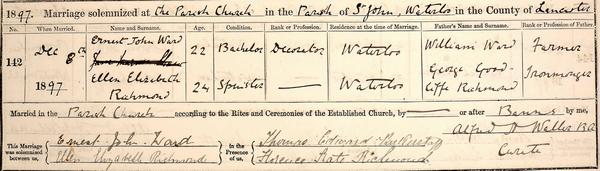 1897. Marriage solemnized at the Parish Church in the Parish of St John, Waterloo in the County of Lancaster
No. When Married. Name and Surname. Age. Condition. Rank or Profession. Residence at the time of Marriage. Father's Name and Surname. Rank or Profession of Father.
142 Dec 8th 1897 Ernest John Ward 22 Bachelor Decorator Waterloo William Ward Farmer
Ellen Elizabeth Richmond 24 Spinster — Waterloo George Goodliffe Richmond Ironmonger
Married in the Parish Church according to the Rites and Ceremonies of the Established Church, by — or after Banns by me,
This Marriage was solemnized between us, Ernest John Ward
Ellen Elizabeth Richmond
In the Presence of us, Thomas Edward
Florence Kate Richmond
Alfred Willis B.A
Curate